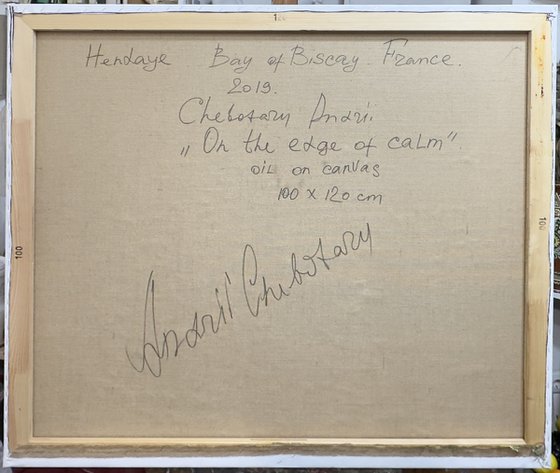 120
Hendaye Bay of Biscay. France.
2019.
Chebotary Andrii.
„On the edge of calm"
oil on canvas
100 x 120 cm
Andrii Chebotary
100
100